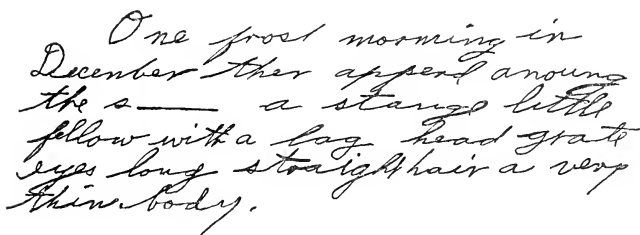 One frost morming in
December ther apperd anoung
the s—— a stange little
fellow with a lag head grate
eyes long straight hair a very
thin body.